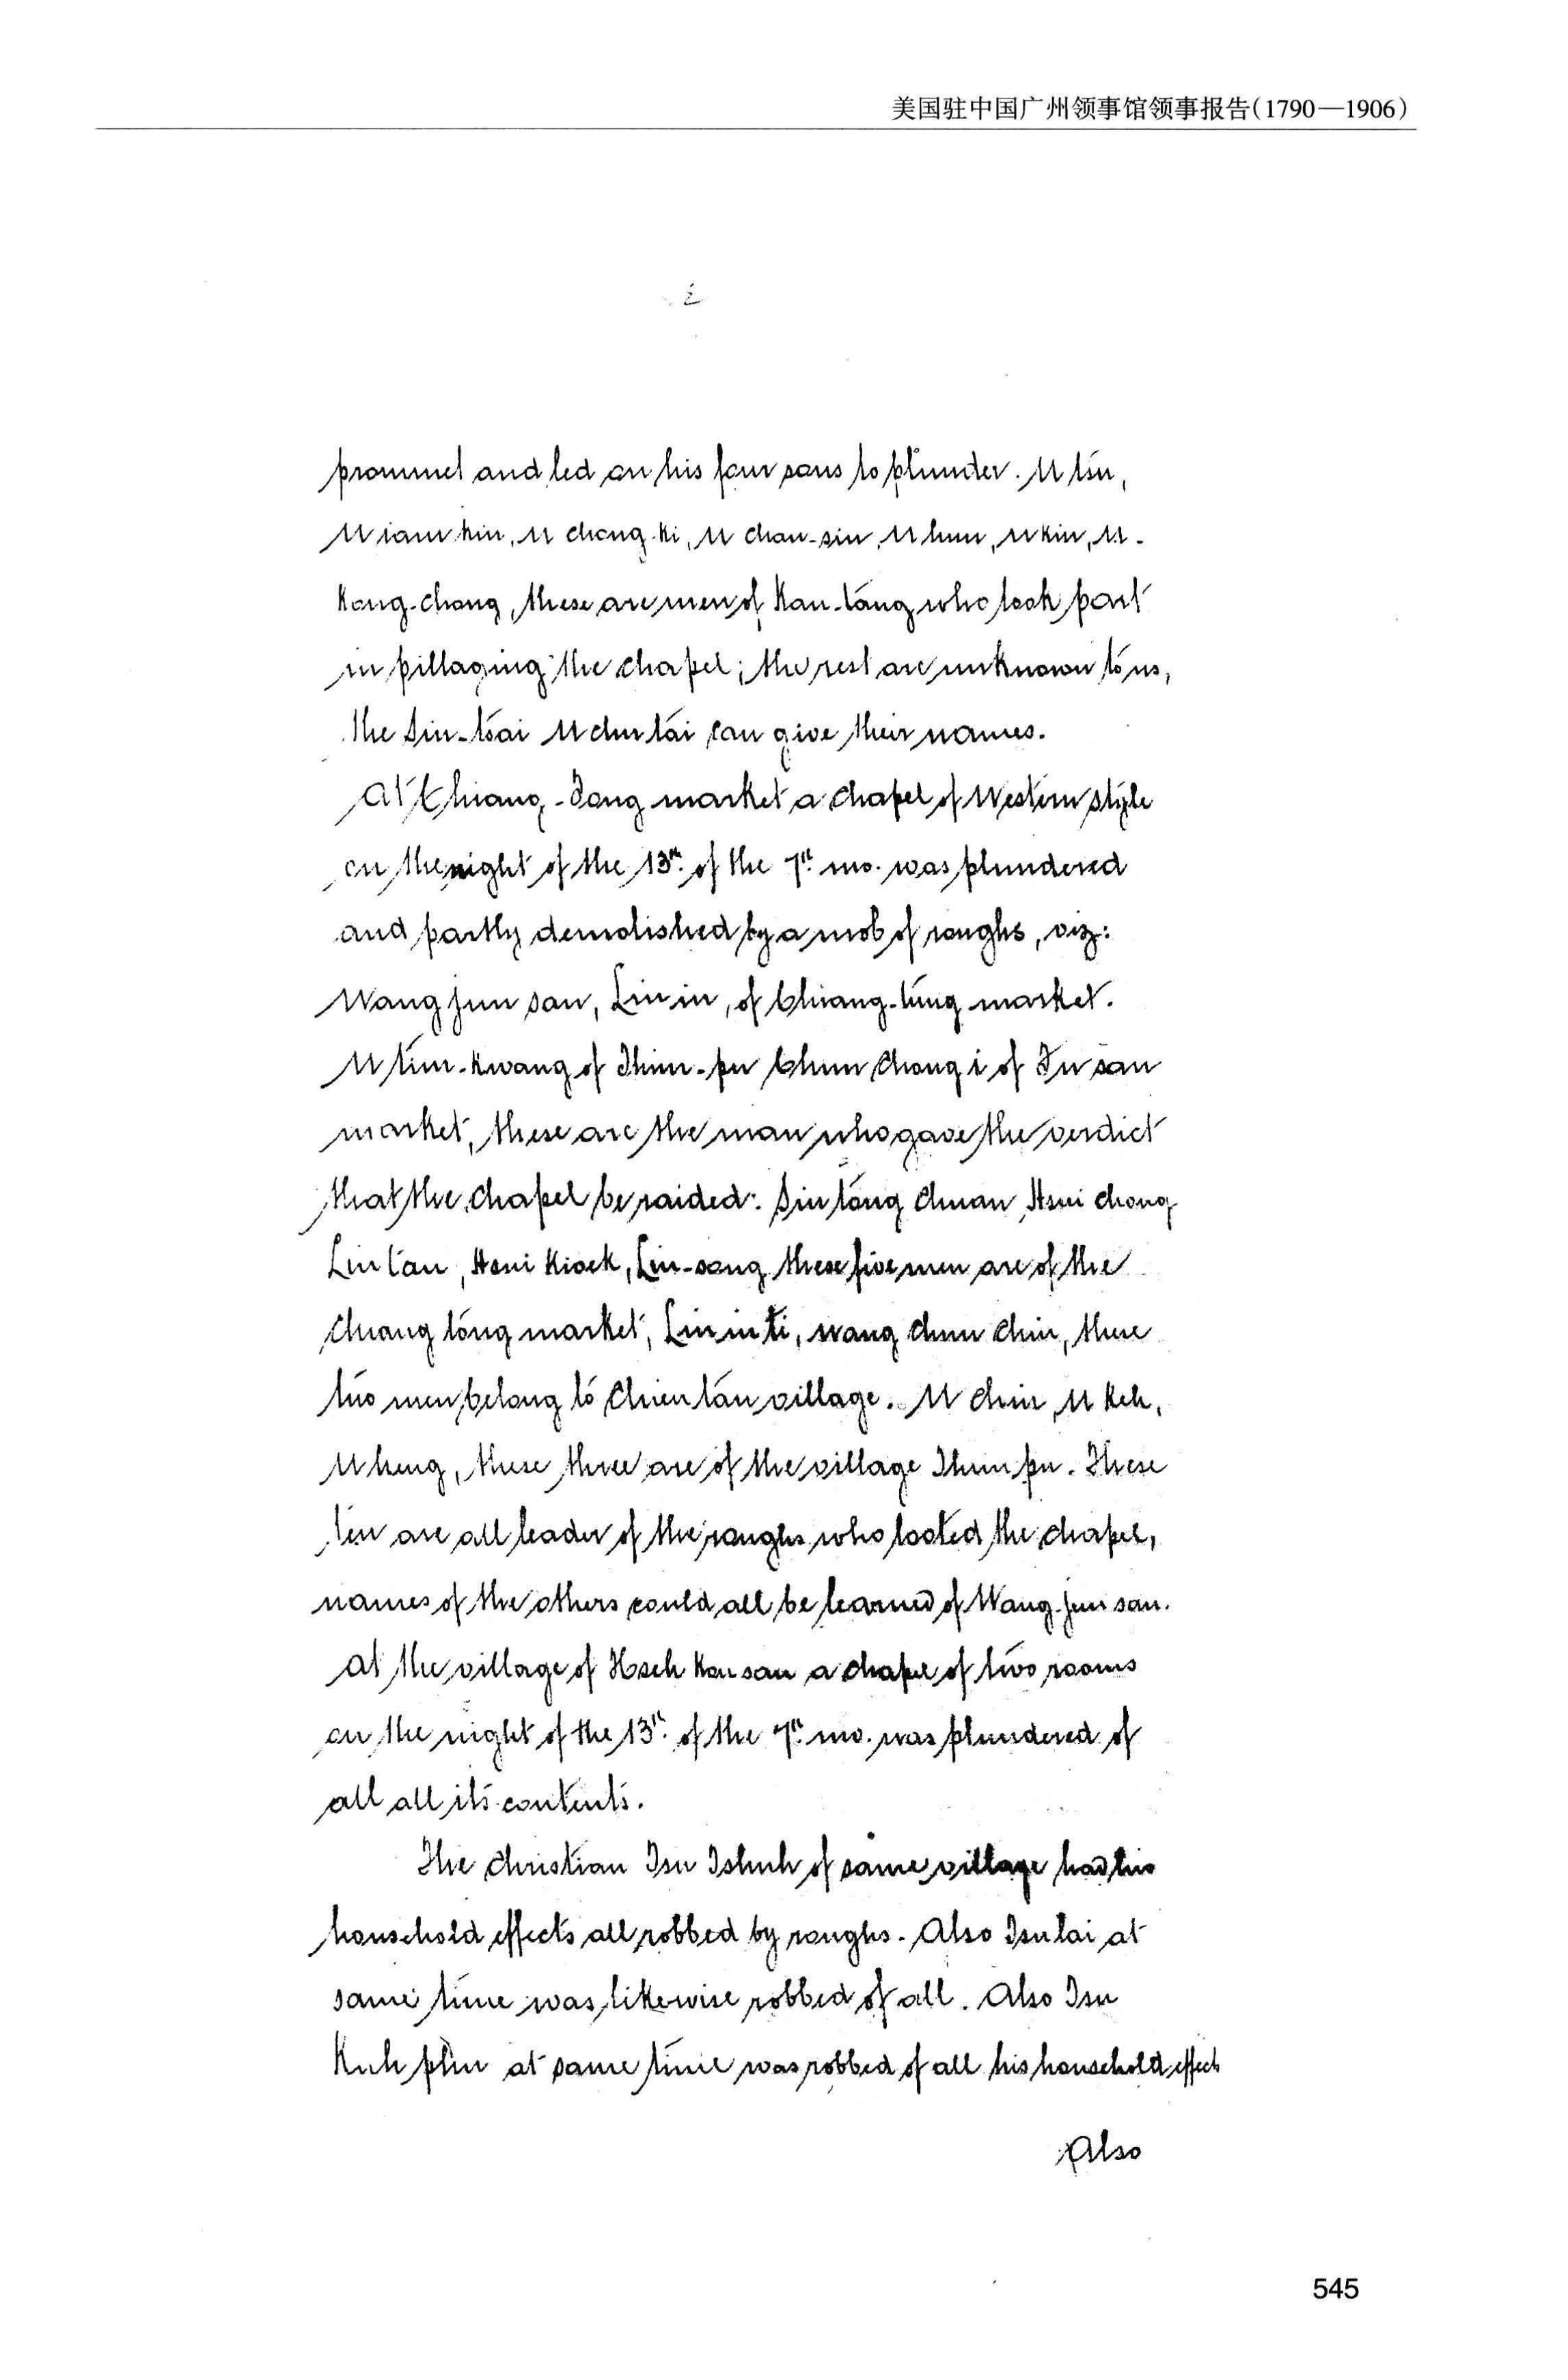 美国驻中国广州领事馆领事报告(1790—1906)
2
prommel and led on his four sons to plunder. U tin,
U iam kin, U chong ki, U chan-sin, U hun, U kin, U-
Kong-chong, these are men of Kau-tang who took part
in pillaging the chapel; the rest are unknown to us,
the Siu-tsai U chu tai can give their names.
At Chiang-Tong market a chapel of Western style
on the night of the 13th. of the 7th. mo. was plundered
and partly demolished by a mob of roughs, viz:
Wang jun san, Lin in, of Chiang-tung market.
U tim-kwang of Thim-pu Chun Chong i of Fu san
market, these are the man who gave the verdict
that the chapel be raided: Siu tong Chuan, Hsui chong
Lin tan, Hsui Kiock, Lin-song these five men are of the
Chuang tong market, Lin in ti, Wang chun Chin, these
two men belong to Chien tan village. U Chin, U Keh,
U heng, these three are of the village Thim pu. These
ten are all leader of the roughs who looted the chapel,
names of the others could all be learned of Wang-jun san.
At the village of Hseh Kau san a chapel of two rooms
on the night of the 13th. of the 7th. mo. was plundered of
all all its contents.
The Christian Tsu Tshuh of same village had his
household effects all robbed by roughs. Also Tsu lai at
same time was likewise robbed of all. Also Tsu
Kuh phin at same time was robbed of all his household effects
Also
545